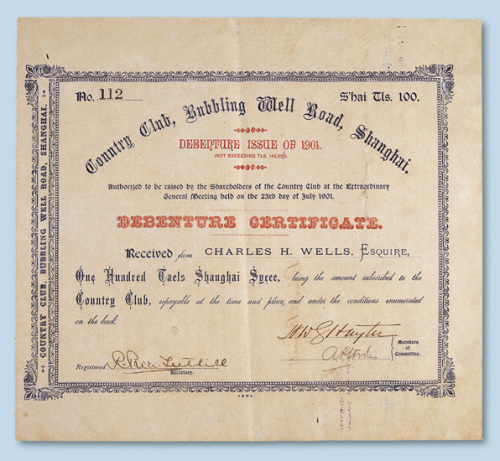 No. 112
S'hai Tls. 100.
Country Club, Bubbling Well Road, Shanghai.
DEBENTURE ISSUE OF 1901.
Authorized to be raised by the Shareholders of the Country Club at the Extraordinary
General Meeting held on the 23rd day of July 1901.
DEBENTURE CERTIFICATE.
Received from CHARLES H. WELLS, ESQUIRE,
One Hundred Taels Shanghai Sycee, being the amount subscribed to the
Country Club, repayable at the time and place, and under the conditions enumerated
on the back.
Members
of
Committee.
Registered
Secretary.
COUNTRY CLUB, BUBBLING WELL ROAD, SHANGHAI.